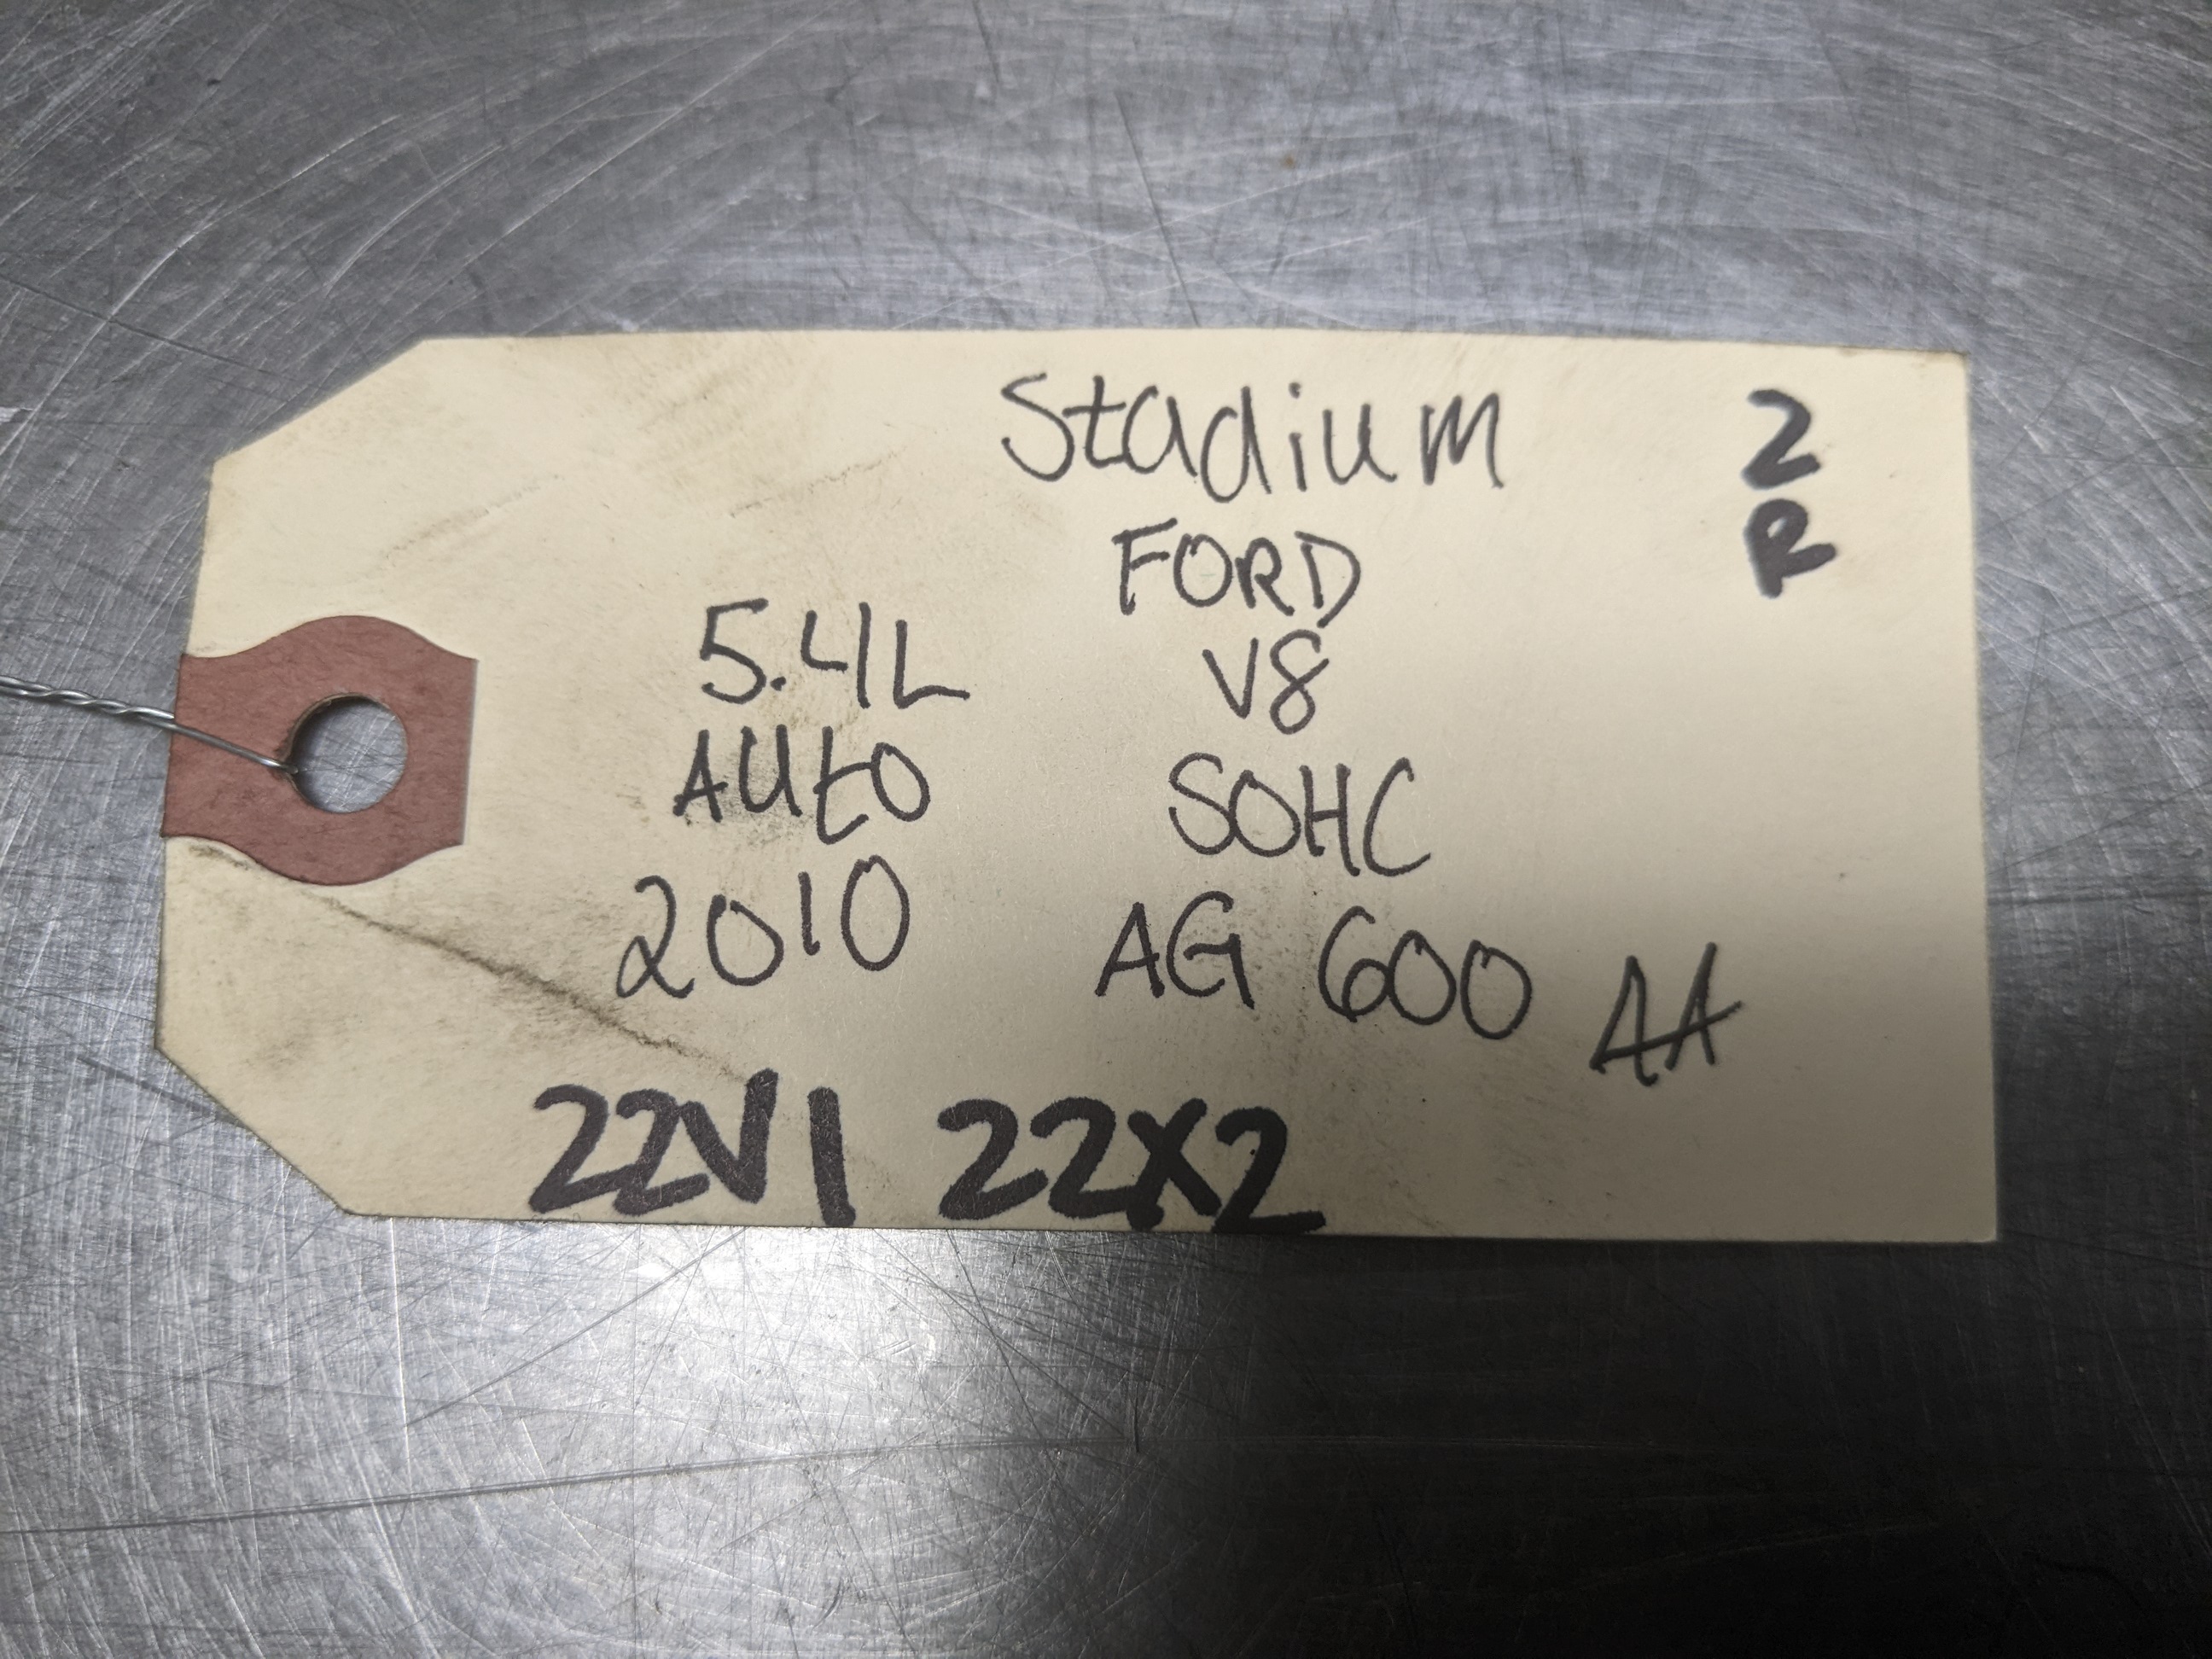 Stadium
2
R
FORD
5.4L V8
AUto SOHC
2010 AG 600 AA
22V1 22X2